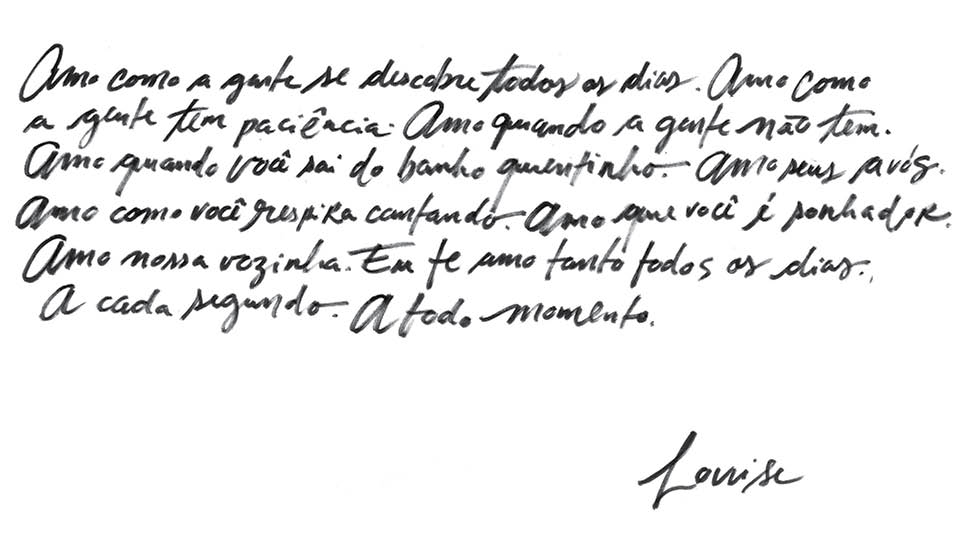 Amo como a gente se descobre todos os dias. Amo como
a gente tem paciência. Amo quando a gente não tem.
Amo quando você sai do banho quentinho. Amo seus avós.
Amo como você respira cantando. Amo que você é sonhador.
Amo nossa vozinha. Eu te amo tanto todos os dias.
A cada segundo. A todo momento.
Louise